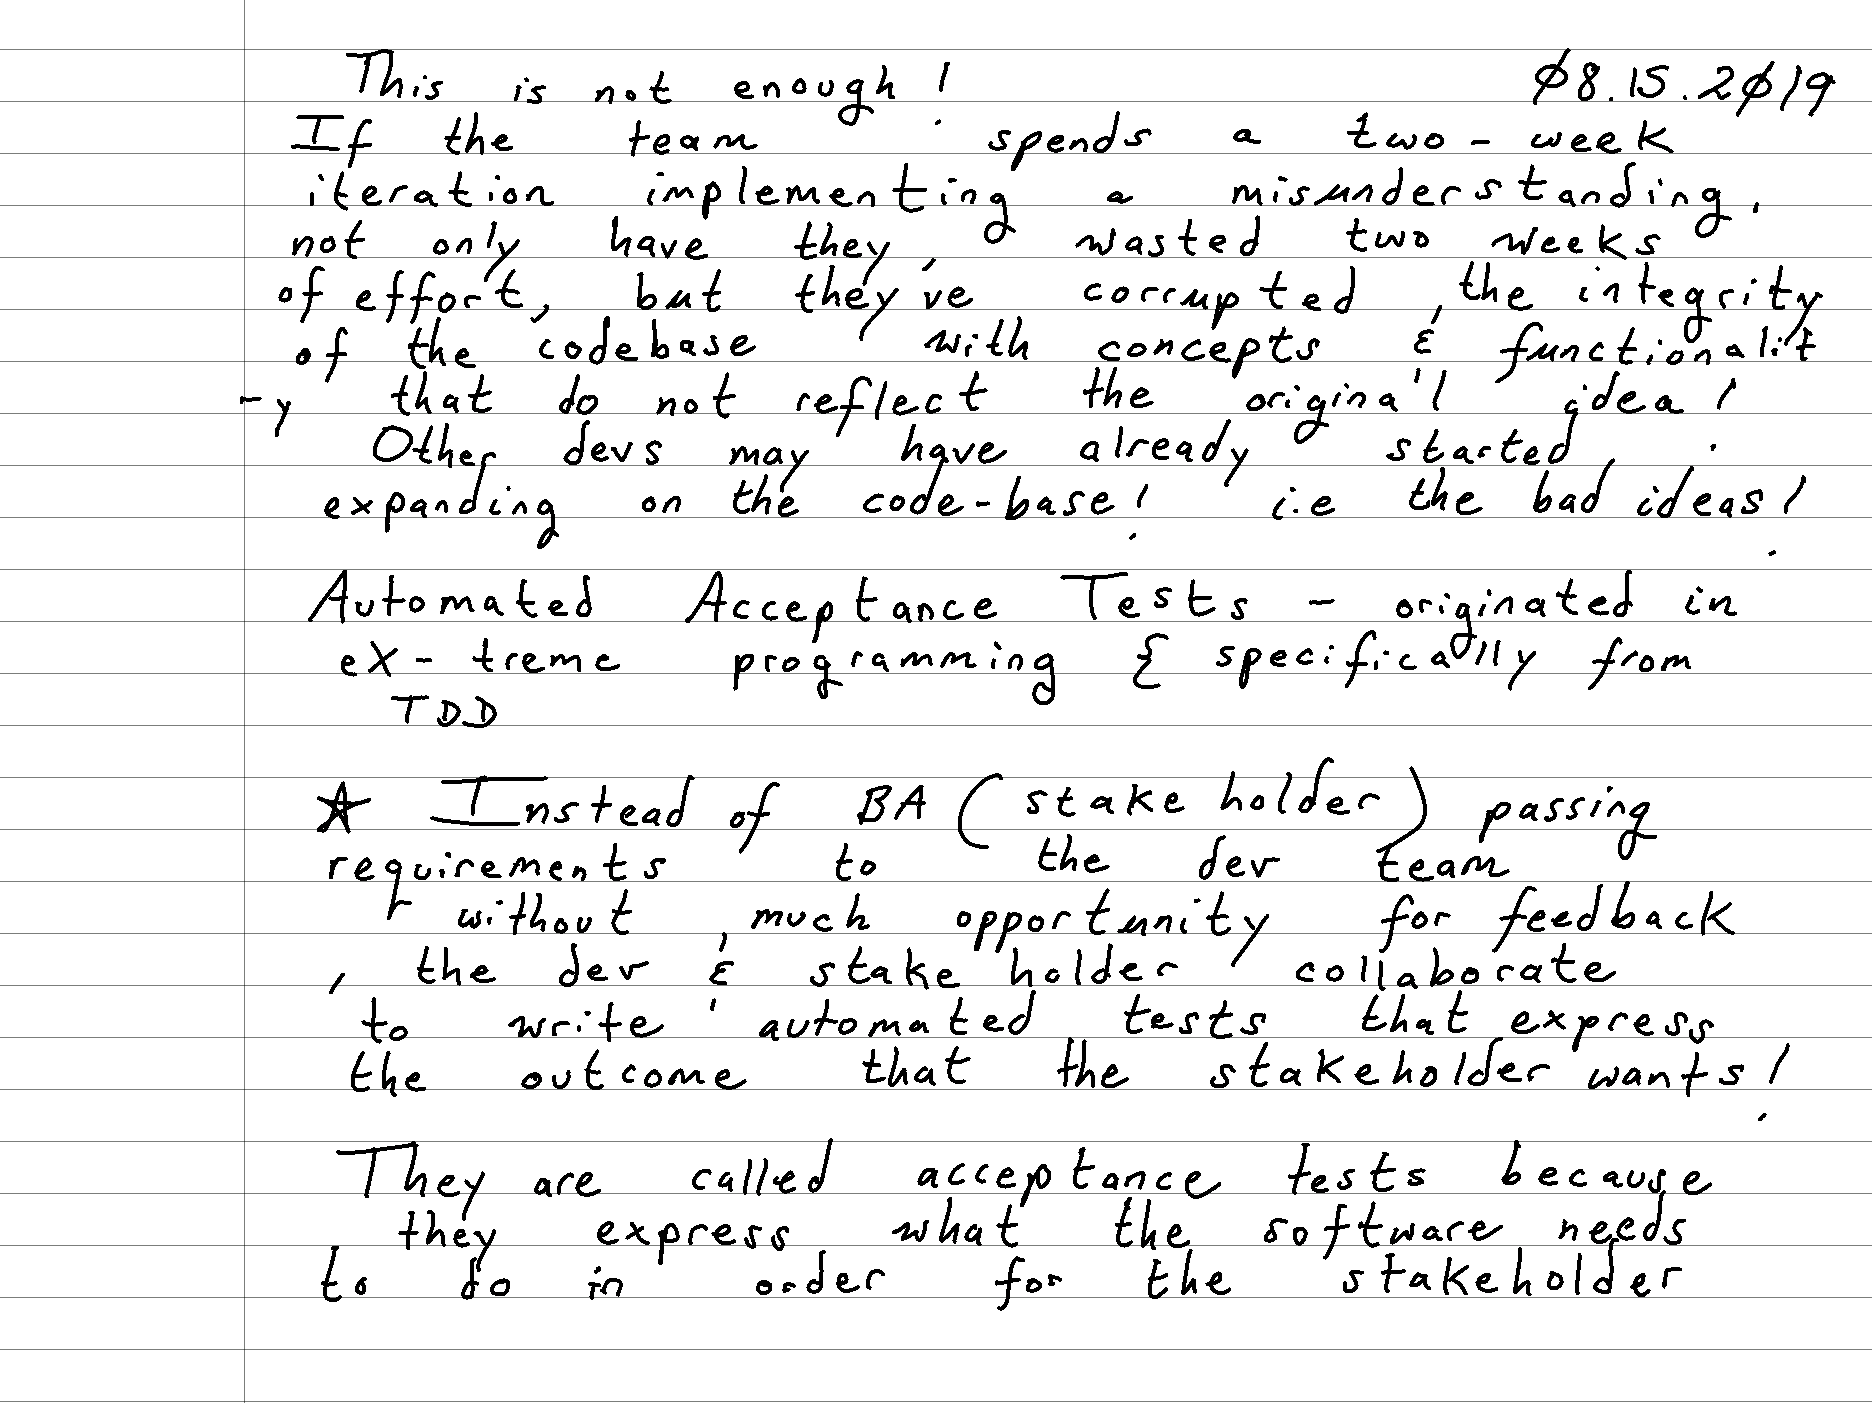 This is not enough! Ø8.15.2Ø19
If the team spends a two-week
iteration implementing a misunderstanding,
not only have they wasted two weeks
of effort, but they've corrupted the integrity
of the codebase with concepts & functionalit
-y that do not reflect the original idea!
Other devs may have already started
expanding on the code-base! i.e the bad ideas!
Automated Acceptance Tests - originated in
eX-treme programming & specifically from
TDD
☆ Instead of BA (stake holder) passing
requirements to the dev team
without much opportunity for feedback
, the dev & stake holder collaborate
to write automated tests that express
the outcome that the stakeholder wants!
They are called acceptance tests because
they express what the software needs
to do in order for the stakeholder